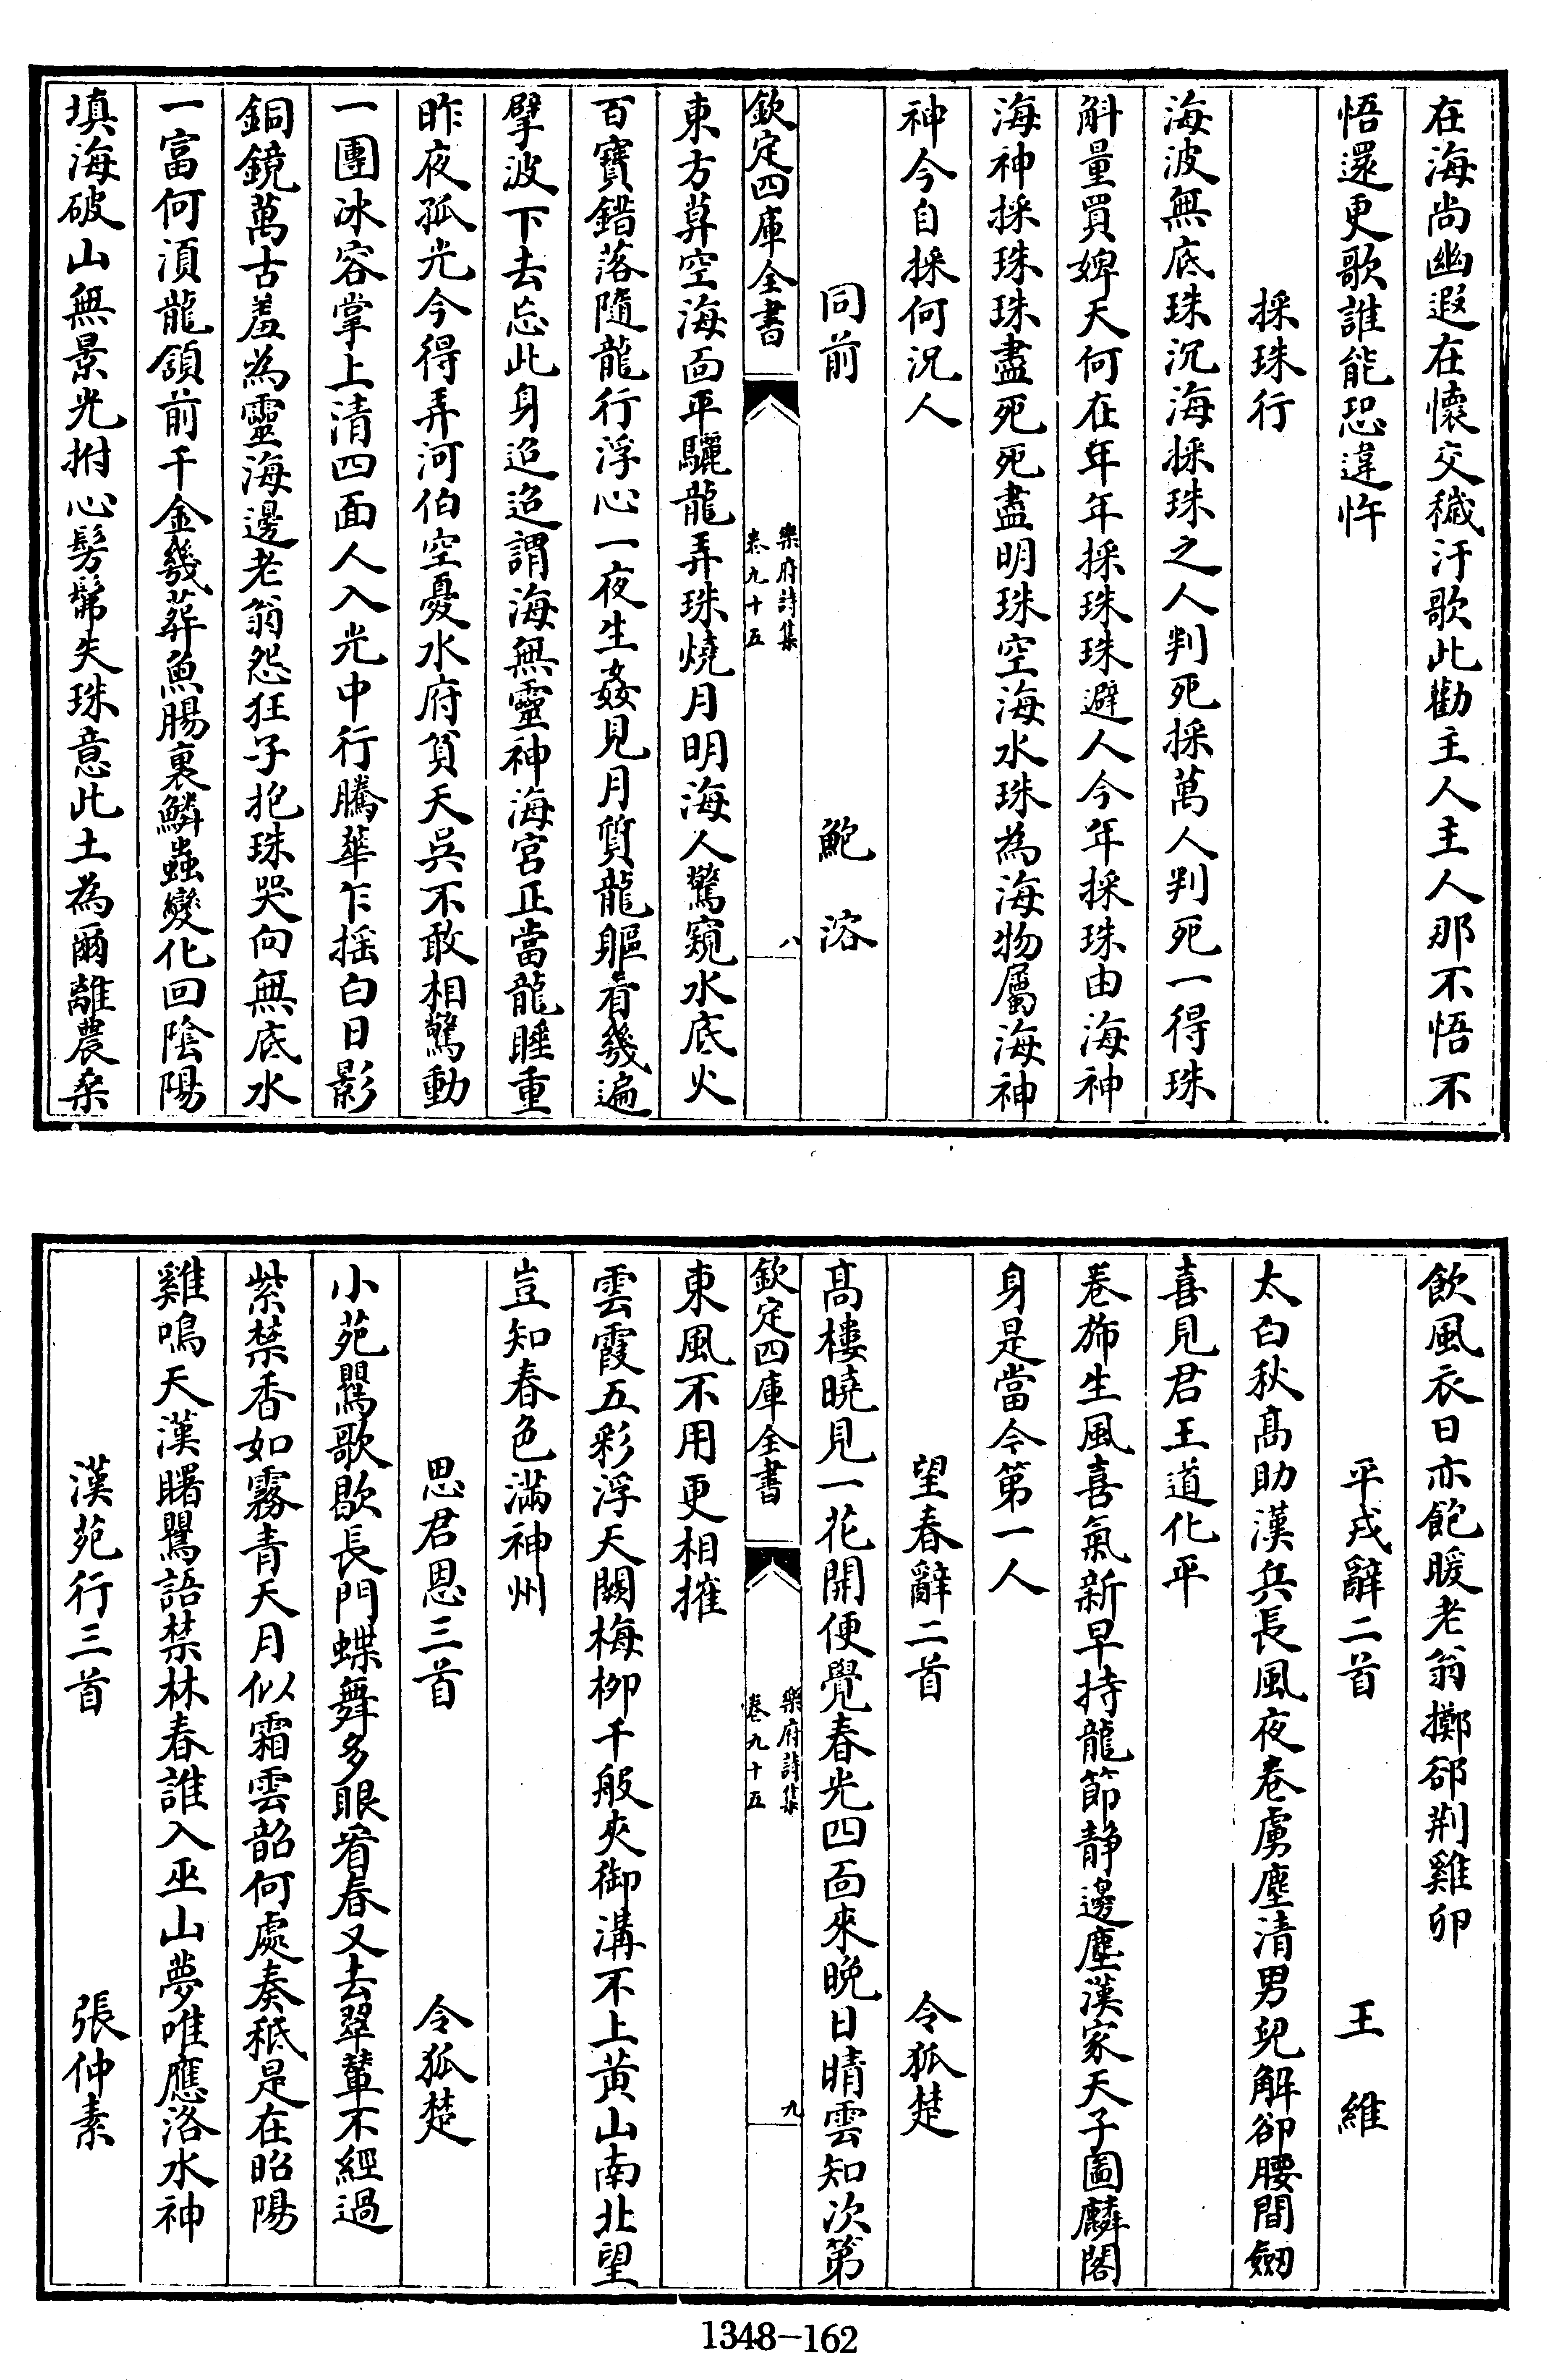 在海尚幽遐在懷交穢汙歌此勸主人主人那不悟不
悟還更歌誰能恐違忤
採珠行
海波無底珠沉海採珠之人判死採萬人判死一得珠
斛量買婢天何在年年採珠珠避人今年採珠由海神
海神採珠珠盡死死盡明珠空海水珠為海物屬海神
神今自採何況人
同前 鮑溶
欽定四庫全書 樂府詩集 卷九十五 八
東方暮空海面平驪龍弄珠燒月明海人驚窺水底火
百寶錯落隨龍行浮心一夜生姦見月質龍軀看幾遍
擘波下去忘此身迢迢謂海無靈神海宮正當龍睡重
昨夜孤光今得弄河伯空憂水府貧天吳不敢相驚動
一團冰容掌上清四面人入光中行騰華乍揺白日影
銅鏡萬古羞為靈海邊老翁怨狂子抱珠哭向無底水
一富何湏龍頷前千金幾葬魚腸裏鱗蟲變化回陰陽
填海破山無景光拊心髣髴失珠意此土為爾離農桑
飲風衣日亦飽暖老翁擲郤荆雞卵
平戎辭二首 王維
太白秋髙助漢兵長風夜卷虜塵清男兒解卻腰間劒
喜見君王道化平
卷旆生風喜氣新早持龍節靜邊塵漢家天子圖麟閣
身是當今第一人
望春辭二首 令狐楚
髙樓曉見一花開便覺春光四面來晚日晴雲知次第
欽定四庫全書 樂府詩集 卷九十五 九
東風不用更相摧
雲霞五彩浮天闕梅栁千般夾御溝不上黃山南北望
豈知春色滿神州
思君恩三首 令狐楚
小苑鸎歌歇長門蝶舞多眼看春又去翠輦不經過
紫禁香如霧青天月似霜雲韶何處奏秖是在昭陽
雞鳴天漢曙鸎語禁林春誰入巫山夢唯應洛水神
漢苑行三首 張仲素
1348-162